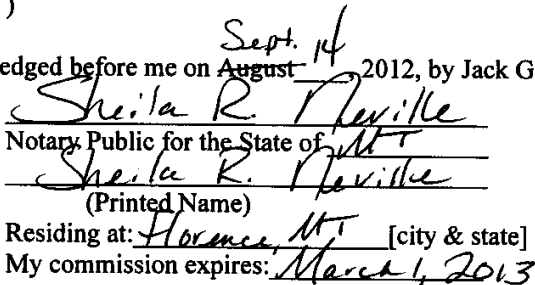 )
Sept. 14
edged before me on August 2012, by Jack G
Sheila R. Neville
Notary Public for the State of MT
Sheila R. Neville
(Printed Name)
Residing at: Florence, MT [city & state]
My commission expires: March 1, 2013